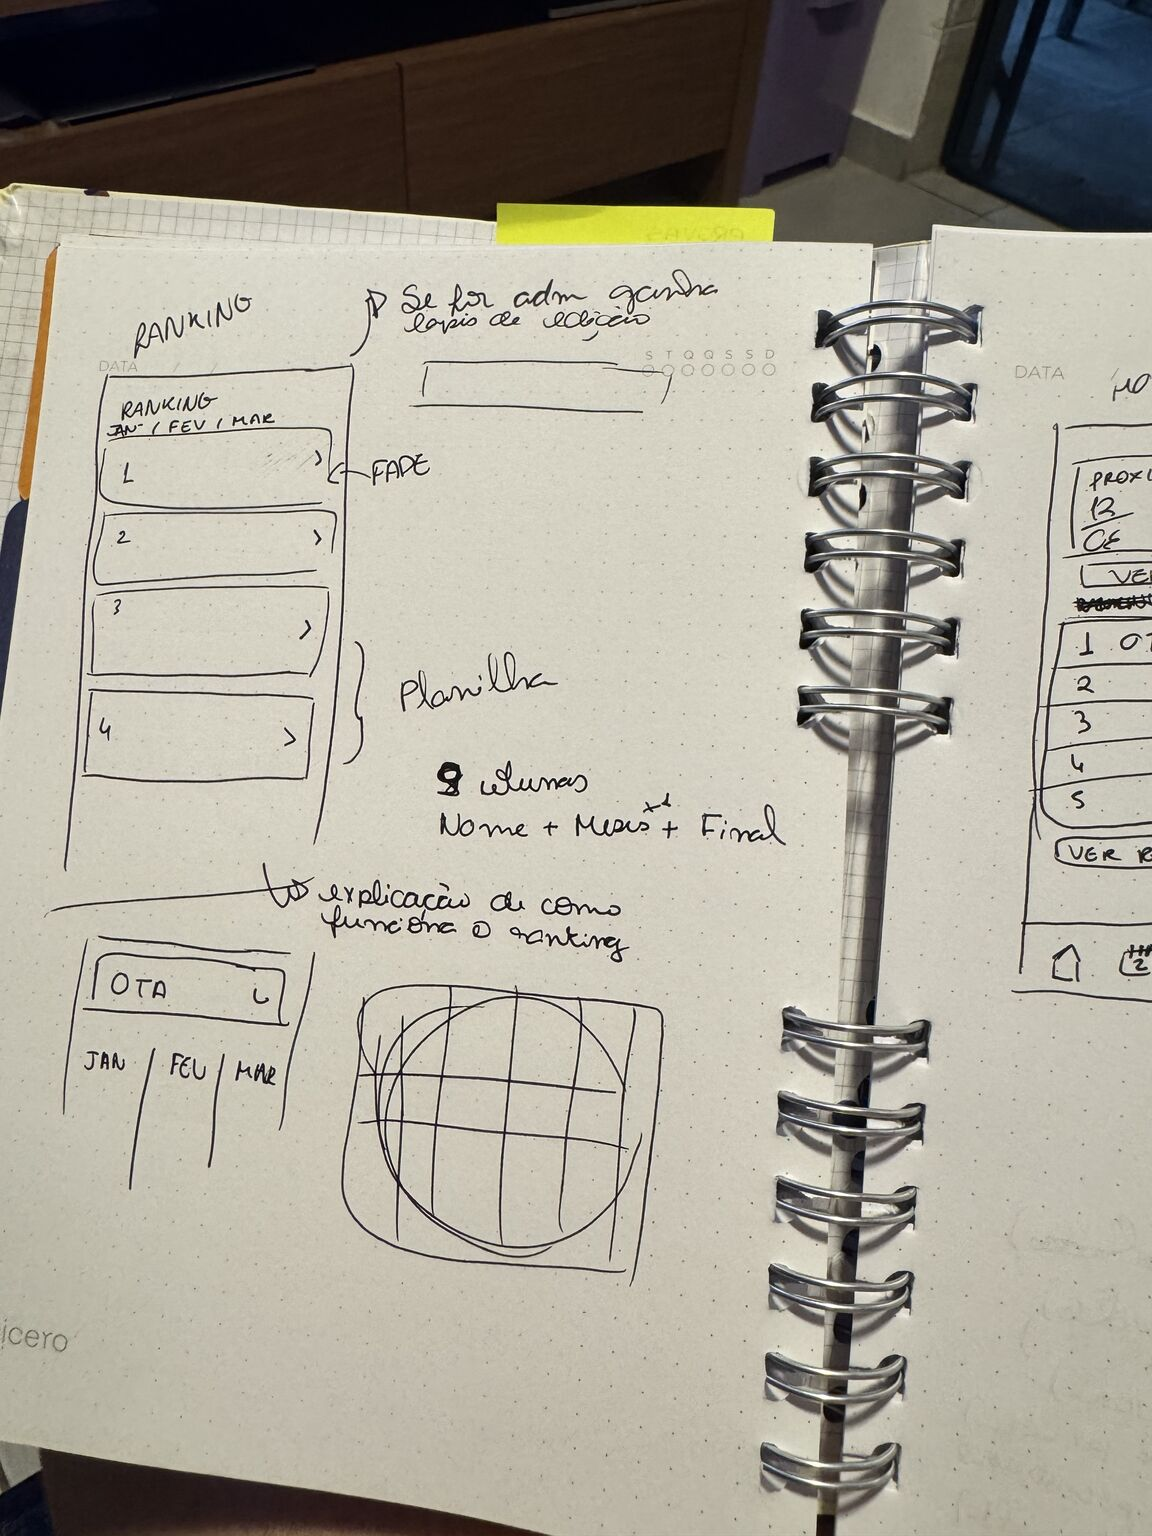 PROVAS
RANKING
Se for adm ganha
lapis de edição
DATA / /
S T Q Q S S D
RANKING
JAN / FEV / MAR
1 >
FADE
2 >
3 >
4 >
Planilha
colunas
Nome + Meses + Final
explicação de como
funciona o ranking
OTA
JAN / FEV / MAR
icero
DATA
PROXI
12
CE
VER
1 OT
2
3
4
5
VER R
2